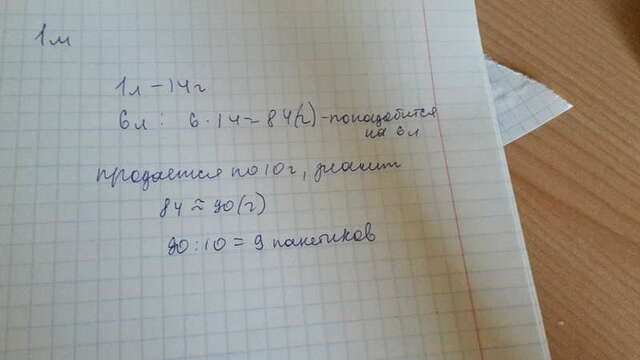 1м
1л - 14г
6л: 6 · 14 = 84(г) - понадобится
на 6л
продаётся по 10г, значит
84 ≈ 90(г)
90 : 10 = 9 пакетиков